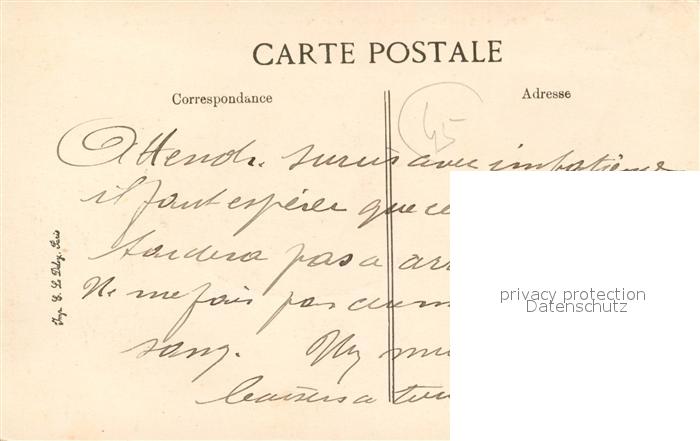 CARTE POSTALE
Correspondance
Adresse
45
Attends sursis avec impatience
il faut espérer que ce
tardera pas a arr
Ne me fais pas de m
sang. My mi
baisers a tou
Imp. E. Le Deley, Paris
privacy protection
Datenschutz